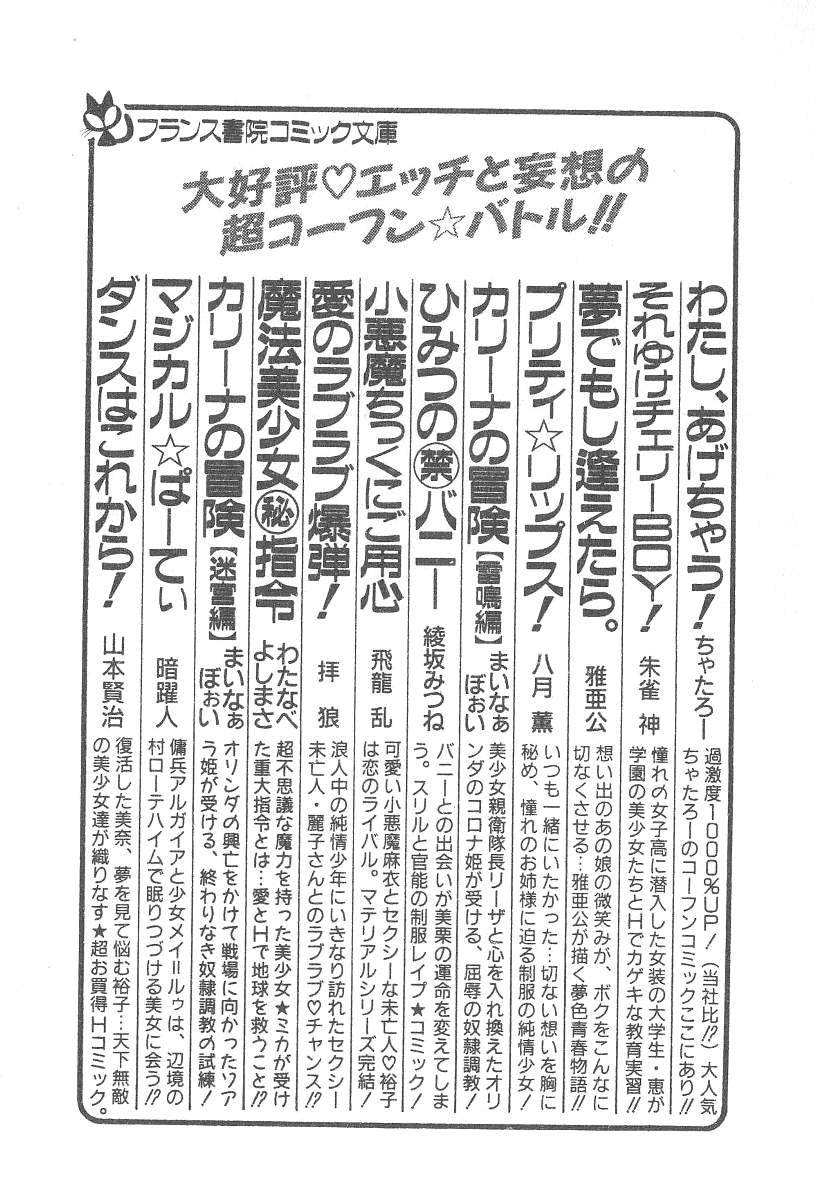 フランス書院コミック文庫
大好評♡エッチと妄想の
超コーフン☆バトル!!
わたし、あげちゃう! ちゃたろー
過激度1000%UP!(当社比!?)大人気
ちゃたろーのコーフンコミックここにあり!!
それゆけチェリーBOY! 朱雀 神
憧れの女子高に潜入した女装の大学生・恵が
学園の美少女たちとHでカゲキな教育実習!!
夢でもし逢えたら。 雅亜公
想い出のあの娘の微笑みが、ボクをこんなに
切なくさせる…雅亜公が描く夢色青春物語!!
プリティ☆リップス! 八月 薫
いつも一緒にいたかった…切ない想いを胸に
秘め、憧れのお姉様に迫る制服の純情少女!
カリーナの冒険【雷鳴編】 まいなぁ
ぼぉい
美少女親衛隊長リーザと心を入れ換えたオリ
ンダのコロナ姫が受ける、屈辱の奴隷調教!
ひみつの㊝バニー 綾坂みつね
バニーとの出会いが美栗の運命を変えてしま
う。スリルと官能の制服レイプ★コミック!
小悪魔ちっくにご用心 飛龍 乱
可愛い小悪魔麻衣とセクシーな未亡人♡裕子
は恋のライバル。マテリアルシリーズ完結!
愛のラブラブ爆弾! 拝 狼
浪人中の純情少年にいきなり訪れたセクシー
未亡人・麗子さんとのラブラブ♡チャンス!?
魔法美少女㊙指令 わたなべ
よしまさ
超不思議な魔力を持った美少女★ミカが受け
た重大指令とは…愛とHで地球を救うこと!?
カリーナの冒険【迷宮編】 まいなぁ
ぼぉい
オリンダの興亡をかけて戦場に向かったソア
ラ姫が受ける、終わりなき奴隷調教の試練!
マジカル☆ぱーてぃ 暗躍人
傭兵アルガイアと少女メイ=ルゥは、辺境の
村ローテハイムで眠りつづける美女に会う!?
ダンスはこれから! 山本賢治
復活した美奈、夢を見て悩む裕子…天下無敵
の美少女達が織りなす★超お買得Hコミック。